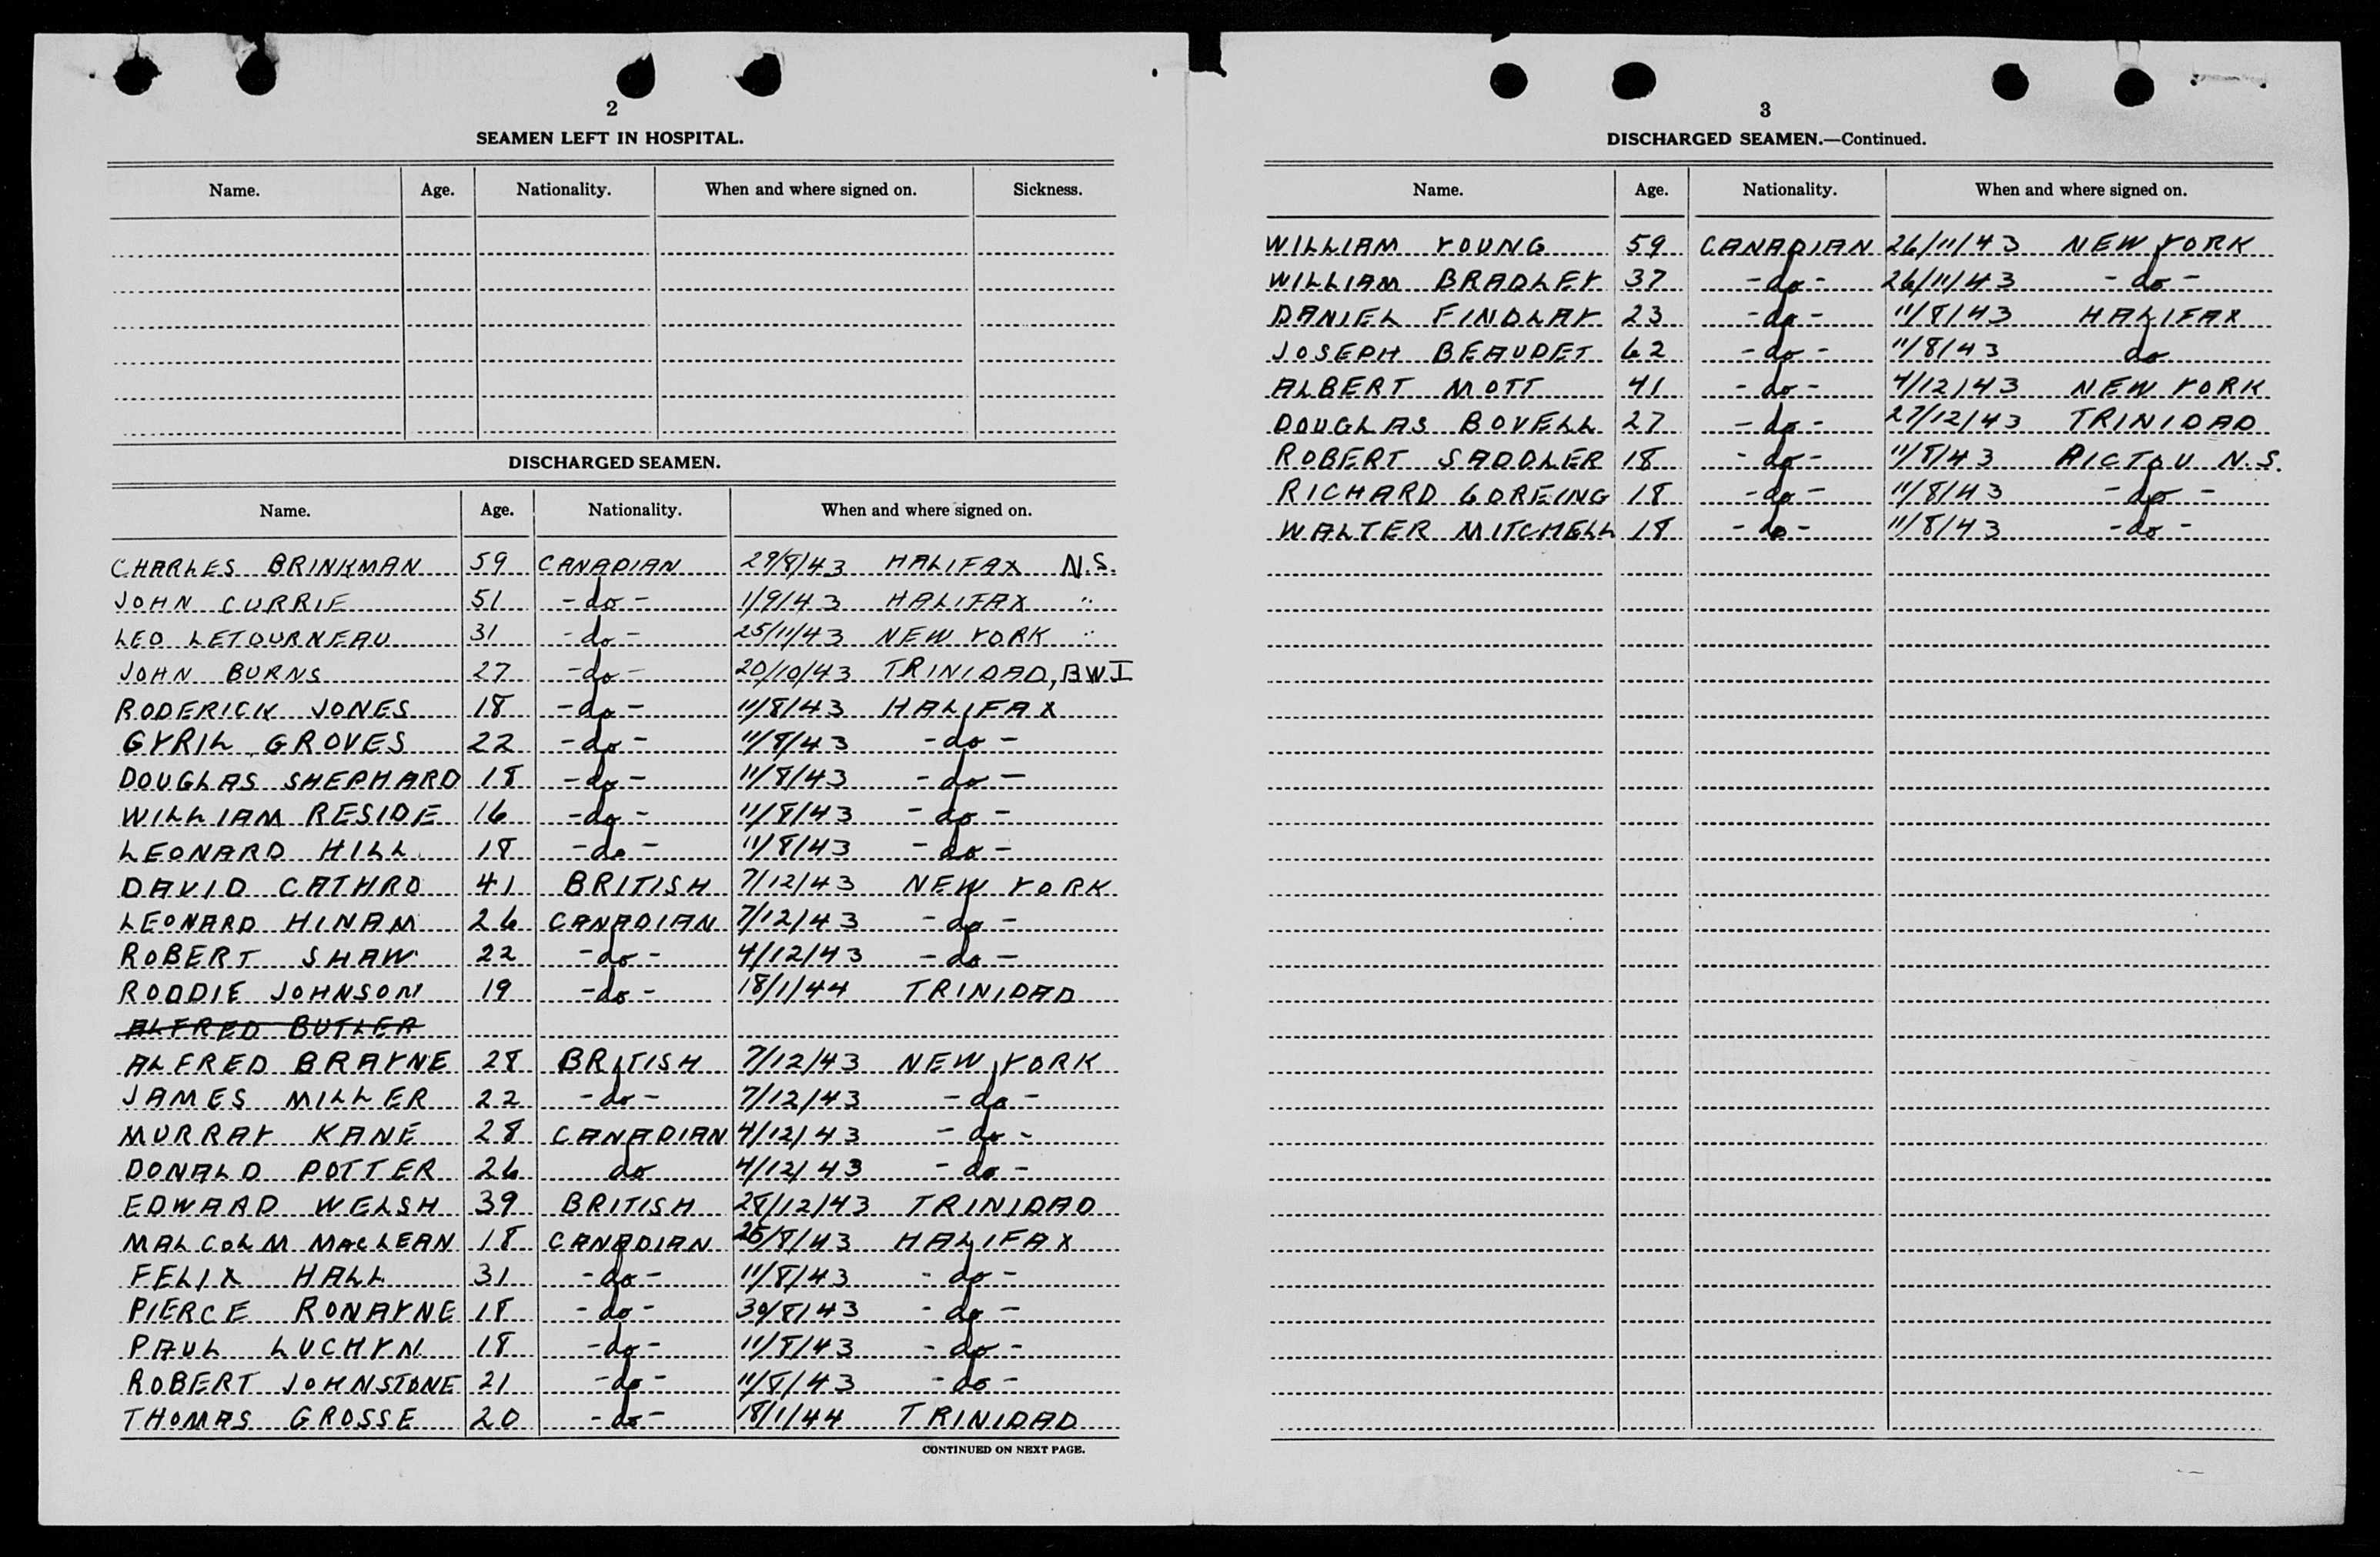 2
SEAMEN LEFT IN HOSPITAL.
Name. Age. Nationality. When and where signed on. Sickness.
DISCHARGED SEAMEN.
Name. Age. Nationality. When and where signed on.
CHARLES BRINKMAN 59 CANADIAN 29/8/43 HALIFAX N.S.
JOHN CURRIE 51 -do- 1/9/43 HALIFAX "
LEO LETOURNEAU 31 -do- 25/11/43 NEW YORK "
JOHN BURNS 27 -do- 20/10/43 TRINIDAD, BWI
RODERICK JONES 18 -do- 11/8/43 HALIFAX
CYRIL GROVES 22 -do- 11/8/43 -do-
DOUGLAS SHEPHARD 18 -do- 11/8/43 -do-
WILLIAM RESIDE 16 -do- 11/8/43 -do-
LEONARD HILL 18 -do- 11/8/43 -do-
DAVID CATHRO 41 BRITISH 7/12/43 NEW YORK
LEONARD HINAM 26 CANADIAN 7/12/43 -do-
ROBERT SHAW 22 -do- 4/12/43 -do-
RODDIE JOHNSON 19 -do- 18/1/44 TRINIDAD
ALFRED BUTLER
ALFRED BRAYNE 28 BRITISH 7/12/43 NEW YORK
JAMES MILLER 22 -do- 7/12/43 -do-
MURRAY KANE 28 CANADIAN 4/12/43 -do-
DONALD POTTER 26 do 4/12/43 -do-
EDWARD WELSH 39 BRITISH 28/12/43 TRINIDAD
MALCOLM MacLEAN 18 CANADIAN 25/8/43 HALIFAX
FELIX HALL 31 -do- 11/8/43 -do-
PIERCE RONAYNE 18 -do- 30/8/43 -do-
PAUL LUCHYN 18 -do- 11/8/43 -do-
ROBERT JOHNSTONE 21 -do- 11/8/43 -do-
THOMAS GROSSE 20 -do- 18/1/44 TRINIDAD
CONTINUED ON NEXT PAGE.
3
DISCHARGED SEAMEN.—Continued.
Name. Age. Nationality. When and where signed on.
WILLIAM YOUNG 59 CANADIAN 26/11/43 NEW YORK
WILLIAM BRADLEY 37 -do- 26/11/43 -do-
DANIEL FINDLAY 23 -do- 11/8/43 HALIFAX
JOSEPH BEAUDET 62 -do- 11/8/43 do
ALBERT MOTT 41 -do- 4/12/43 NEW YORK
DOUGLAS BOVELL 27 -do- 27/12/43 TRINIDAD
ROBERT SADDLER 18 -do- 11/8/43 PICTOU N.S.
RICHARD GOREING 18 -do- 11/8/43 -do-
WALTER MITCHELL 18 -do- 11/8/43 -do-